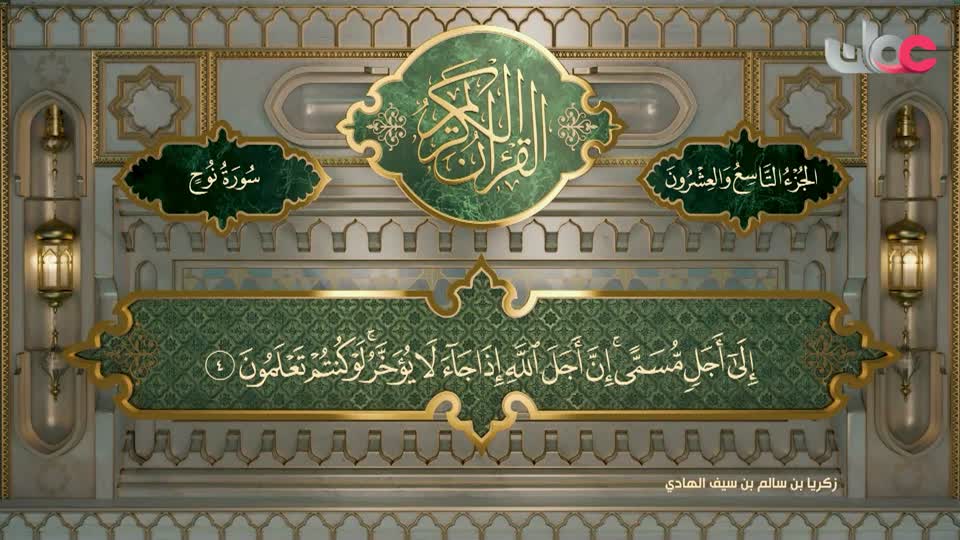 عمان
القرآن الكريم
الجُزْءُ التَّاسِعُ وَالعِشْرُونَ
سُورَةُ نُوحٍ
إِلَىٰٓ أَجَلٍ مُّسَمًّىۚ إِنَّ أَجَلَ ٱللَّهِ إِذَا جَآءَ لَا يُؤَخَّرُۚ لَوۡ كُنتُمۡ تَعۡلَمُونَ ٤
زكريا بن سالم بن سيف الهادي